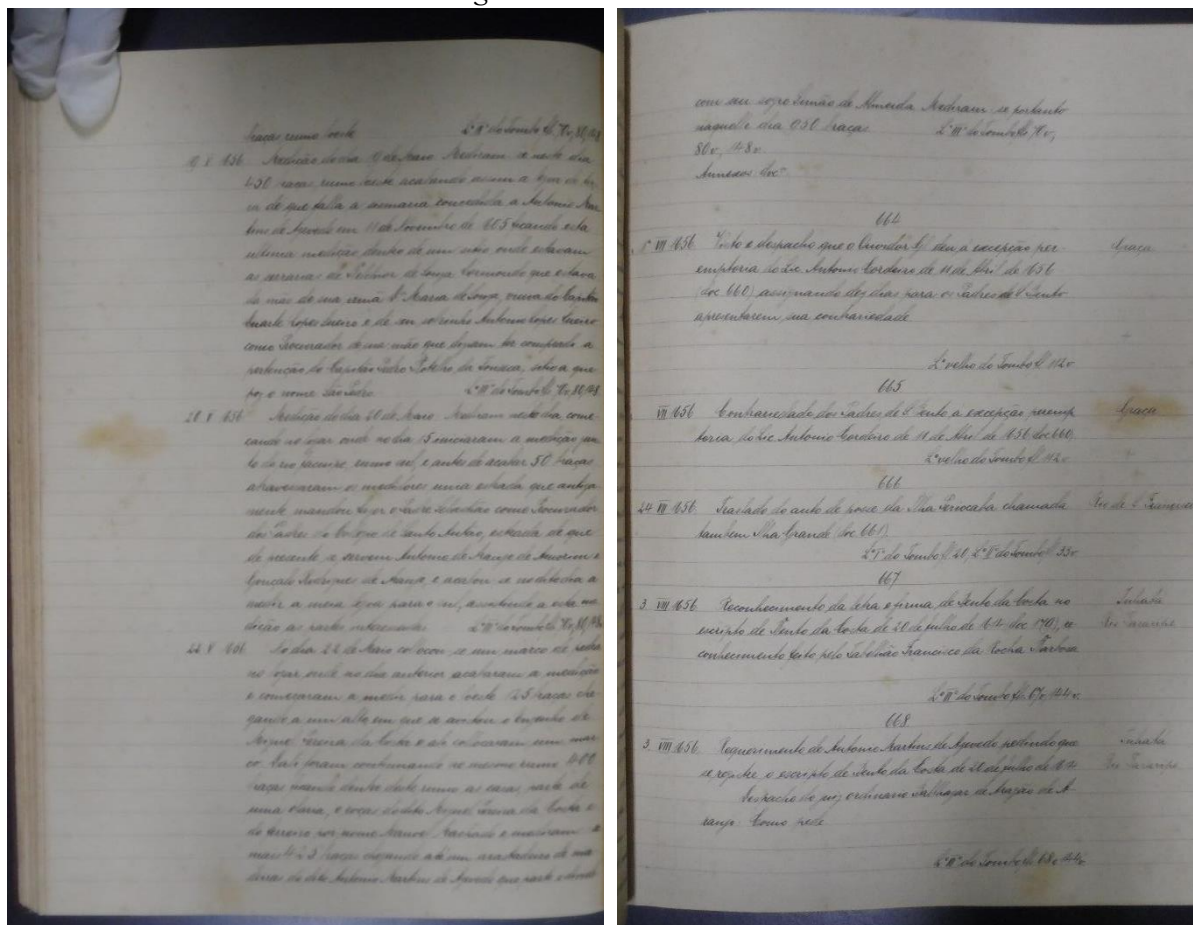 braças rumo oeste Lº IIº do Tombo fl. 70v, 80, 148
19 V 1656 Medição do dia 19 de Maio Mediram se neste dia
450 braças rumo oeste acabando assim a
ra de que falla a sesmaria concedida a Antonio Mar
tins de Azevedo em 11 de Novembro de 1605 ficando esta
ultima medição dentro de um sitio onde estavam
as serrarias de Belchior de Souza Dormondo que estava
da mãe de sua Maria de Souza, viuva do Capitão
Duarte Lopes e de seu sobrinho Antonio Lopes
como Procurador de sua mãe que diziam ter comprado a
do Capitão Pedro Botelho da Fonseca, sitio a que
poz o nome São Pedro Lº IIº do Tombo fl. 70v, 80, 148
20 V 1656 Medição do dia 20 de Maio Mediram neste dia come
çando no logar onde no dia 15 iniciaram a medição jun
to do rio Jacuipe, rumo sul, e antes de acabar 50 braças
atravessaram os medidores uma estrada que antiga
mente mandou o Padre Sebastião como Procurador
dos Padres do Collegio de Santo Antão, estrada de que
de presente se servem Antonio de Araujo de Amorim e
Gonçalo Rodrigues de Araujo, e acabou se no dito dia a
medir a meia legoa para o sul, assistindo a esta me
dição as partes interessadas Lº IIº do Tombo fl. 70v, 80, 148v
22 V 1656 No dia 22 de Maio collocou se um marco de pedra
no logar onde no dia anterior acabaram a medição
e começaram a medir para o oeste 125 braças che
gando a um alto em que se avistou o engenho de
Miguel Pereira da Costa e ali collocaram um mar
co. Dali foram continuando no mesmo rumo 400
braças ficando dentro deste rumo as casas, parte de
uma olaria, e roças do dito Miguel Pereira da Costa e
do terreiro por nome Manoel Machado e mediram
mais braças chegando até um arrastadeiro de ma
deiras do dito Antonio Martins de Azevedo que parte
com seu sogro Simão de Almeida Mediram se portanto
naquelle dia 950 braças Lº IIº do Tombo fl. 70v,
80v, 148v.
Annexos
664
5 VII 1656 Visto e despacho que o Ouvidor Gl. deu a excepção per Graça
emptoria do Lic. Antonio Cordeiro de 11 de Abril de 1656
(doc 660) assignando dez dias para os Padres de S. Bento
apresentarem sua contrariedade
Lº velho do Tombo fl. 112v
665
VII 1656 Contrariedade dos Padres de S. Bento a excepção peremp Graça
toria do Lic. Antonio Cordeiro de 11 de Abril de 1656 doc 660.
Lº velho do Tombo fl. 112v
666
24 VII 1656 Traslado do auto de posse da Ilha chamada Rio de S. Francisco
tambem Ilha Grande (doc. 661).
Lº Iº do Tombo fl. 20, Lº IIº do Tombo fl. 33v
667
3 VIII 1656 Reconhecimento da letra e firma de Bento da Costa no Inhatá
escripto de Bento da Costa de 20 de julho de (doc 170), re Rio
conhecimento feito pelo Tabellião Francisco da Rocha Barbosa
Lº IIº do Tombo fl. 67v, 144v.
668
3 VIII 1656 Requerimento de Antonio Martins de Azevedo pedindo que Inhatá
se registre o escripto de Bento da Costa de 20 de julho de Rio
Despacho do juiz ordinario Balthazar de Aragão de A
raujo. Como pede
Lº IIº do Tombo fl. 68v, 144v